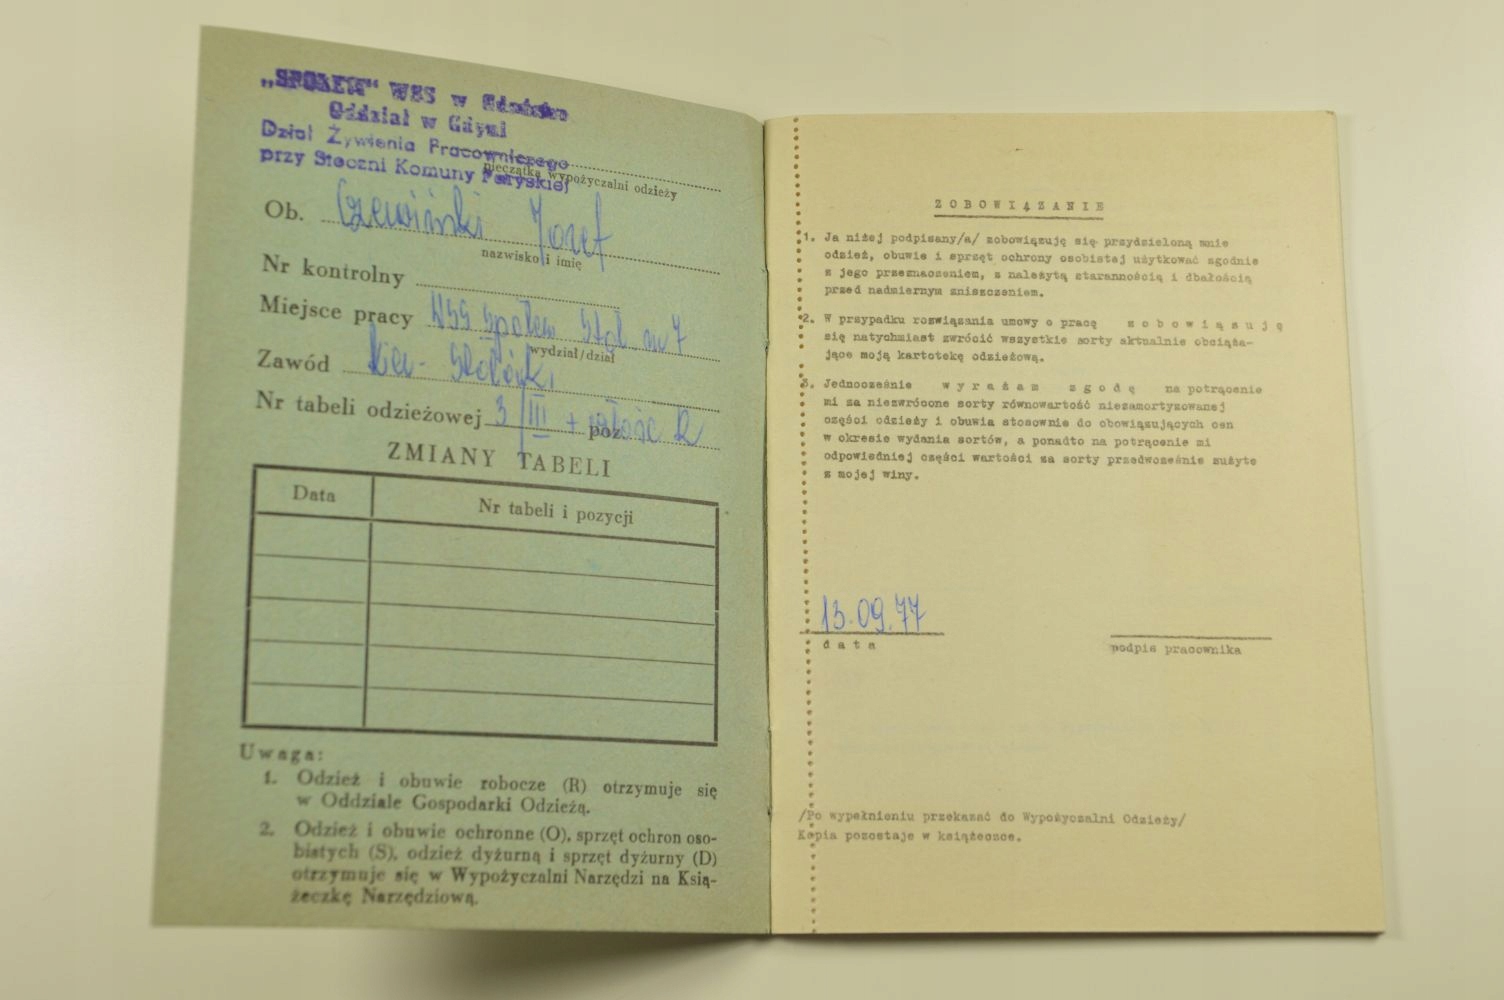 „SPOŁEM" WSS w Gdańsku
Oddział w Gdyni
Dział Żywienia Pracowniczego
przy Stoczni Komuny Paryskiej
pieczątka wypożyczalni odzieży
Ob. Czewiński Jozef
nazwisko i imię
Nr kontrolny
Miejsce pracy WSS Społem Stoł nr 7
wydział/dział
Zawód kier- Stołówki
Nr tabeli odzieżowej 3/III + poz. R
ZMIANY TABELI
Data Nr tabeli i pozycji
Uwaga:
1. Odzież i obuwie robocze (R) otrzymuje się
w Oddziale Gospodarki Odzieżą.
2. Odzież i obuwie ochronne (O), sprzęt ochron oso-
bistych (S), odzież dyżurną i sprzęt dyżurny (D)
otrzymuje się w Wypożyczalni Narzędzi na Ksią-
żeczkę Narzędziową.
ZOBOWIĄZANIE
1. Ja niżej podpisany/a/ zobowiązuję się przydzieloną mnie
odzież, obuwie i sprzęt ochrony osobistej użytkować zgodnie
z jego przeznaczeniem, z należytą starannością i dbałością
przed nadmiernym zniszczeniem.
2. W przypadku rozwiązania umowy o pracę z o b o w i ą z u j ę
się natychmiast zwrócić wszystkie sorty aktualnie obciąża-
jące moją kartotekę odzieżową.
3. Jednocześnie w y r a ż a m z g o d ę na potrącenie
mi za niezwrócone sorty równowartość niezamortyzowanej
części odzieży i obuwia stosownie do obowiązujących cen
w okresie wydania sortów, a ponadto na potrącenie mi
odpowiedniej części wartości za sorty przedwcześnie zużyte
z mojej winy.
13.09.77
d a t a
podpis pracownika
/Po wypełnieniu przekazać do Wypożyczalni Odzieży/
Kopia pozostaje w książeczce.